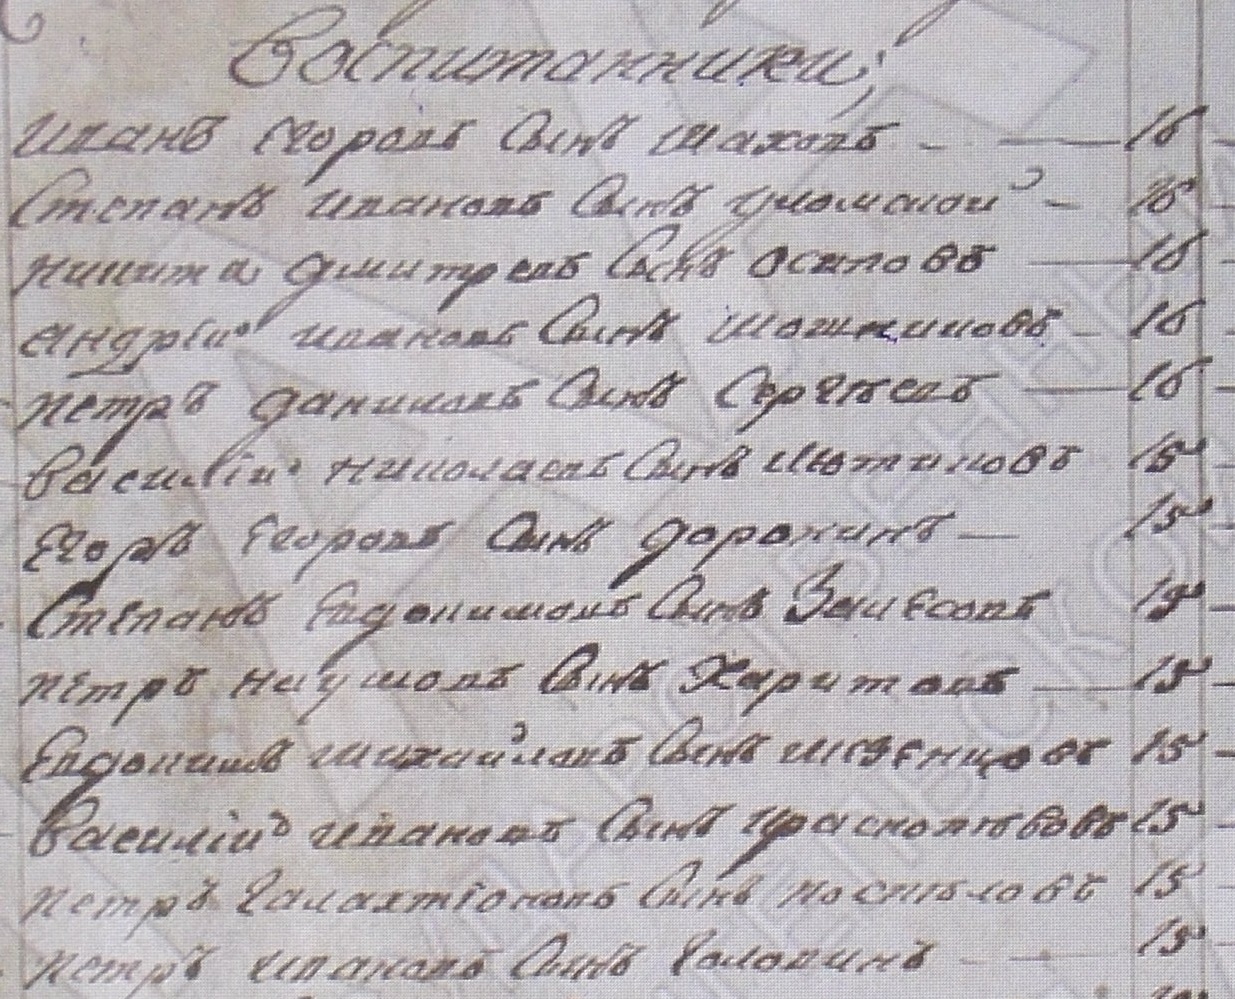 Воспитанники,
Иванъ Егоровъ Сынъ Шаховъ 16
Степанъ Ивановъ Сынъ 16
никита дмитревъ Сынъ осиповъ 16
андрей Ивановъ Сынъ 16
петръ даниловъ Сынъ Сергѣевъ 16
василій николаевъ Сынъ Лютиковъ 15
Егоръ Егоровъ Сынъ дорохинъ 15
Степанъ Евдокимовъ Сынъ 15
петръ наумовъ Сынъ Харитовъ 15
Евдокимъ михайловъ Сынъ мезенцовъ 15
василій ивановъ Сынъ 15
петръ Галахтіоновъ Сынъ поспѣловъ 15
петръ ивановъ Сынъ Головинъ 15